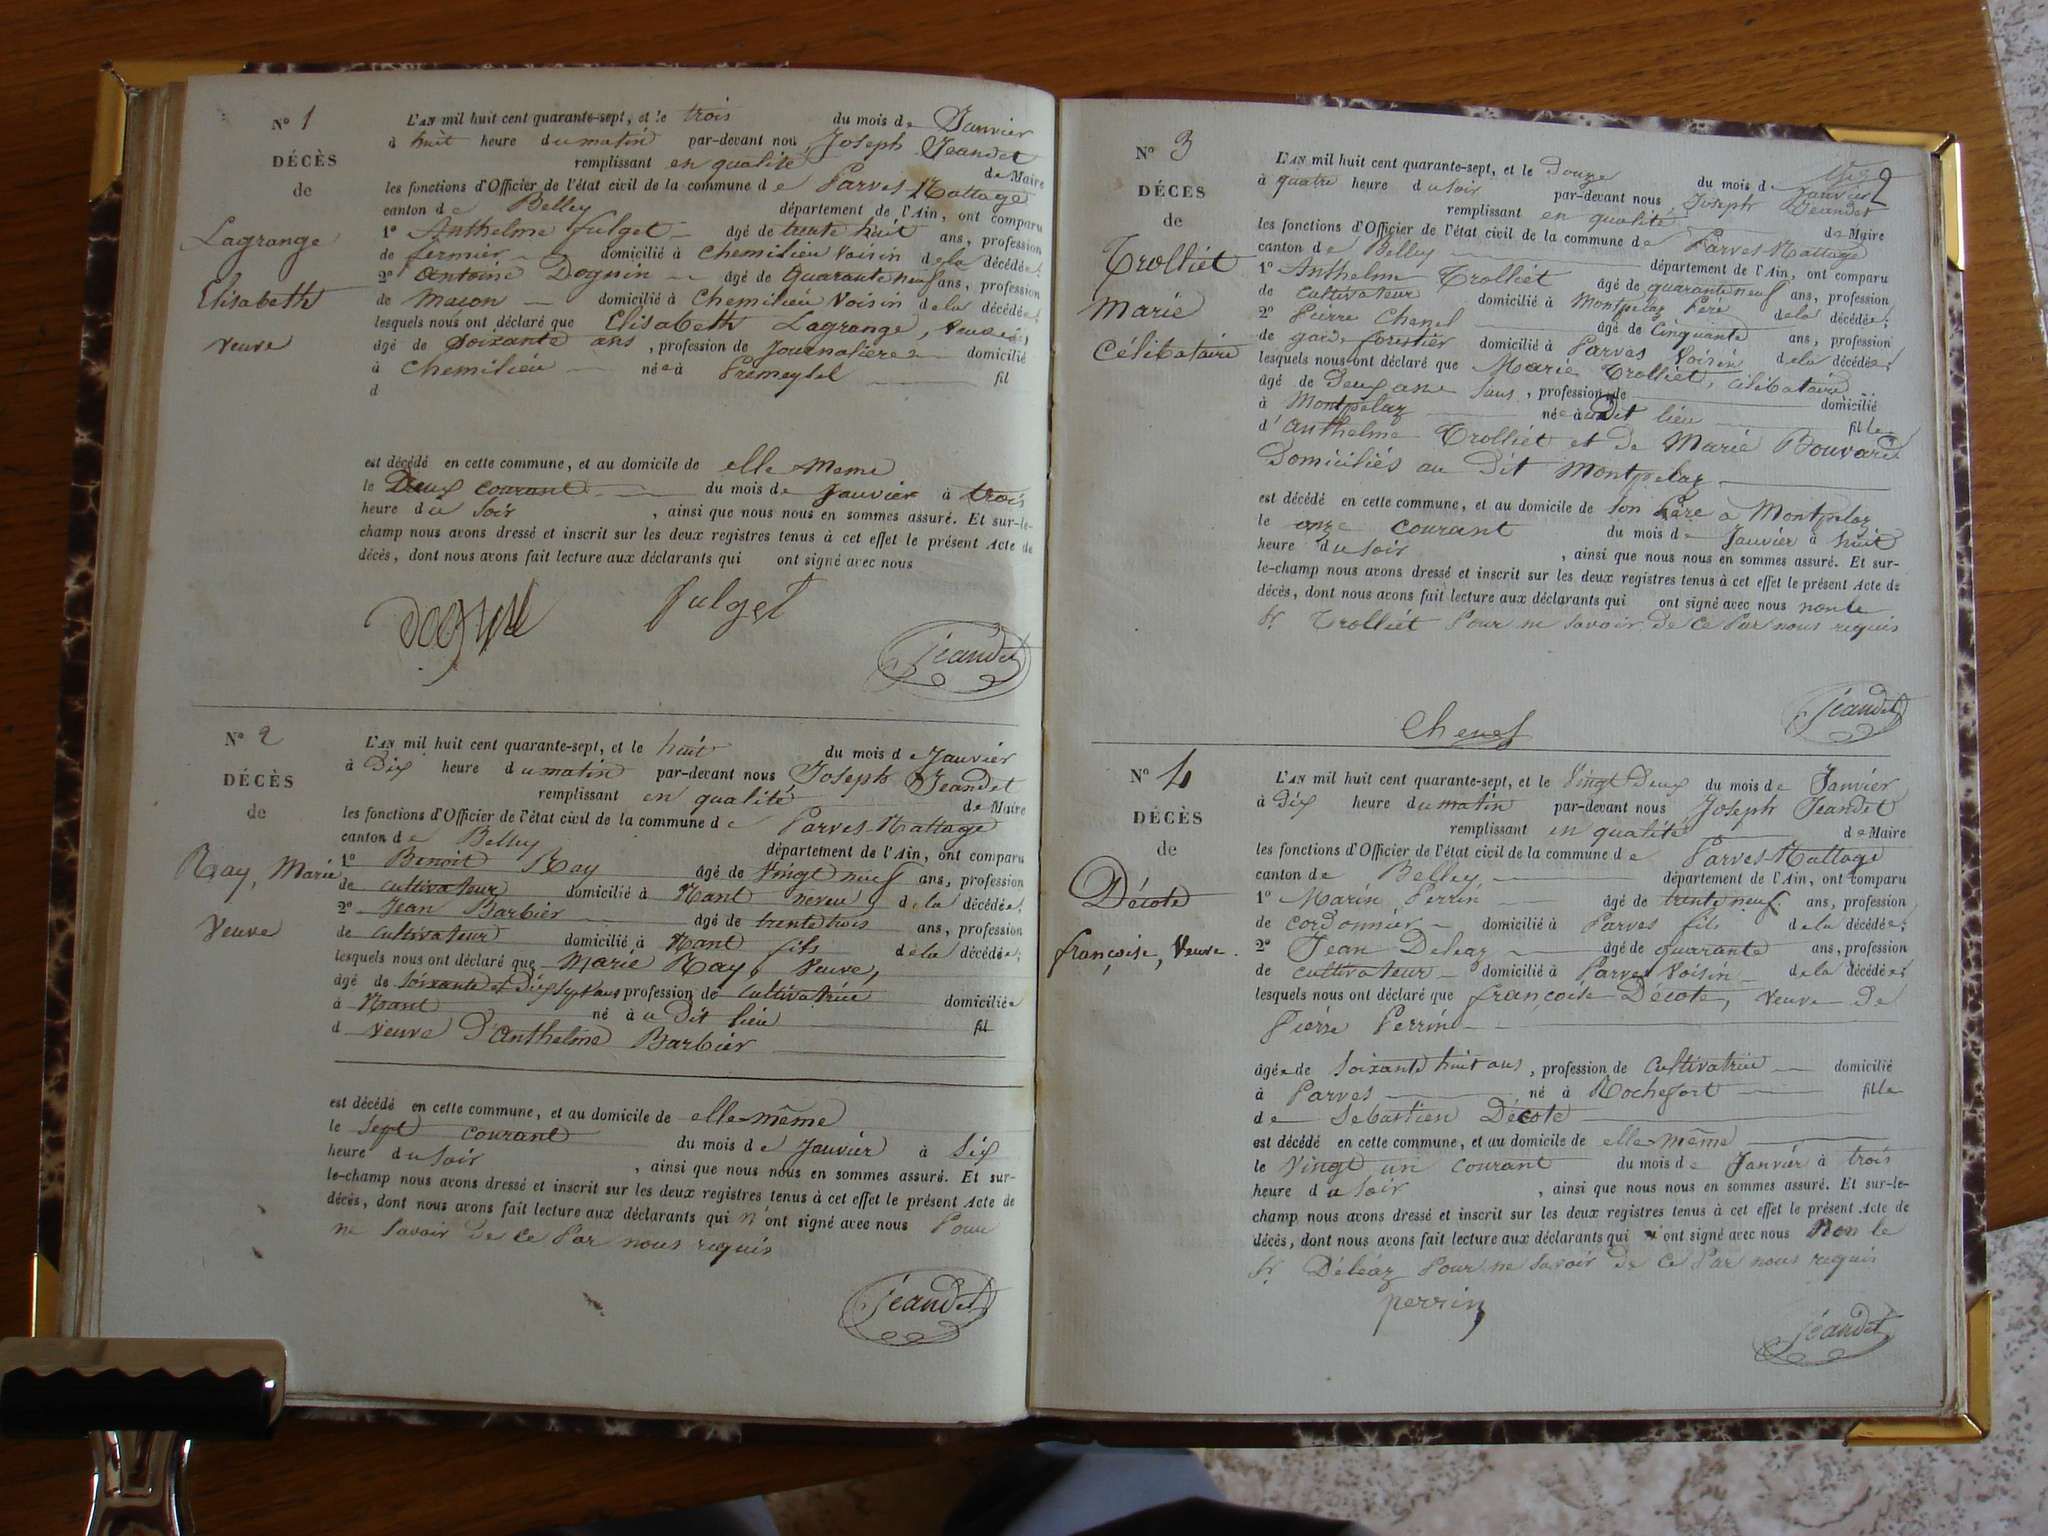 N° 1
DÉCÈS
de
Lagrange
Elisabeth
veuve
L'AN mil huit cent quarante-sept, et le trois du mois de Janvier
à huit heure du matin par-devant nous, Joseph Jeandet
remplissant en qualité de Maire
les fonctions d'Officier de l'état civil de la commune de Parves-Nattage
canton de Belley département de l'Ain, ont comparu
1° Anthelme fulget âgé de trente huit ans, profession
de fermier domicilié à Chemilieu voisin de la décédée;
2° Antoine Doguin âgé de quarante neuf ans, profession
de maçon domicilié à Chemilieu voisin de la décédée;
lesquels nous ont déclaré que Elisabeth Lagrange, veuve,
âgé de soixante ans, profession de Journalière domicilié
à Chemilieu née à Premeyzel fil
d
est décédé en cette commune, et au domicile de elle meme
le Deux courant du mois de Janvier à trois
heure du soir, ainsi que nous nous en sommes assuré. Et sur-le-
champ nous avons dressé et inscrit sur les deux registres tenus à cet effet le présent Acte de
décès, dont nous avons fait lecture aux déclarants qui ont signé avec nous
fulget
jeandet
N° 2
DÉCÈS
de
Ray, Marie
Veuve
L'AN mil huit cent quarante-sept, et le huit du mois de Janvier
à Dix heure du matin par-devant nous Joseph Jeandet
remplissant en qualité de Maire
les fonctions d'Officier de l'état civil de la commune de Parves-Nattage
canton de Belley département de l'Ain, ont comparu
1° Benoit Ray âgé de vingt neuf ans, profession
de cultivateur domicilié à Nant neveu de la décédée;
2° Jean Barbier âgé de trente trois ans, profession
de cultivateur domicilié à Nant fils de la décédée;
lesquels nous ont déclaré que Marie Ray, veuve,
âgé de soixante et Dix sept ans profession de cultivatrice domiciliée
à Nant né àu dit lieu fil
d veuve D'Anthelme Barbier
est décédé en cette commune, et au domicile de elle même
le Sept courant du mois de Janvier à Six
heure du soir, ainsi que nous nous en sommes assuré. Et sur-
le-champ nous avons dressé et inscrit sur les deux registres tenus à cet effet le présent Acte de
décès, dont nous avons fait lecture aux déclarants qui n'ont signé avec nous Pour
ne savoir de ce Par nous requis
jeandet
2
N° 3
DÉCÈS
de
Trolliet
Marie
Célibataire
L'AN mil huit cent quarante-sept, et le Douze du mois de Janvier
à quatre heure du soir par-devant nous, Joseph Jeandet
remplissant en qualité de Maire
les fonctions d'Officier de l'état civil de la commune de Parves-Nattage
canton de Belley département de l'Ain, ont comparu
1° Anthelme Trolliet âgé de quarante neuf ans, profession
de cultivateur domicilié à Montpelaz Père de la décédée;
2° Pierre Chenel âgé de Cinquante ans, profession
de garde forestier domicilié à Parves voisin de la décédée;
lesquels nous ont déclaré que Marie Trolliet, célibataire
âgé de Deux ans sans, profession de domicilié
à Montpelaz née àu Dit lieu fille
d'Anthelme Trolliet et de Marie Bouvard
Domiciliés au Dit Montpelaz
est décédé en cette commune, et au domicile de son Père à Montpelaz
le onze courant du mois de Janvier à huit
heure du soir, ainsi que nous nous en sommes assuré. Et sur-
le-champ nous avons dressé et inscrit sur les deux registres tenus à cet effet le présent Acte de
décès, dont nous avons fait lecture aux déclarants qui ont signé avec nous non le
Sr. Trolliet Pour ne savoir de ce Par nous requis
Chenel
jeandet
N° 4
DÉCÈS
de
Décote
françoise, Veuve.
L'AN mil huit cent quarante-sept, et le vingt Deux du mois de Janvier
à Dix heure du matin par-devant nous Joseph Jeandet
remplissant en qualité de Maire
les fonctions d'Officier de l'état civil de la commune de Parves-Nattage
canton de Belley département de l'Ain, ont comparu
1° Marin Perrin âgé de trente neuf ans, profession
de cordonnier domicilié à Parves fils de la décédée;
2° Jean Deleaz âgé de quarante ans, profession
de cultivateur domicilié à Parves voisin de la décédée;
lesquels nous ont déclaré que françoise Décote, veuve de
Pierre Perrin
âgée de soixante huit ans, profession de cultivatrice domicilié
à Parves né à Rochefort fille
de Sebastien Décote
est décédé en cette commune, et au domicile de elle même
le vingt un courant du mois de Janvier à trois
heure du soir, ainsi que nous nous en sommes assuré. Et sur-le-
champ nous avons dressé et inscrit sur les deux registres tenus à cet effet le présent Acte de
décès, dont nous avons fait lecture aux déclarants qui ont signé avec nous Non le
Sr. Déléaz Pour ne savoir de ce Par nous requis
perrin
jeandet